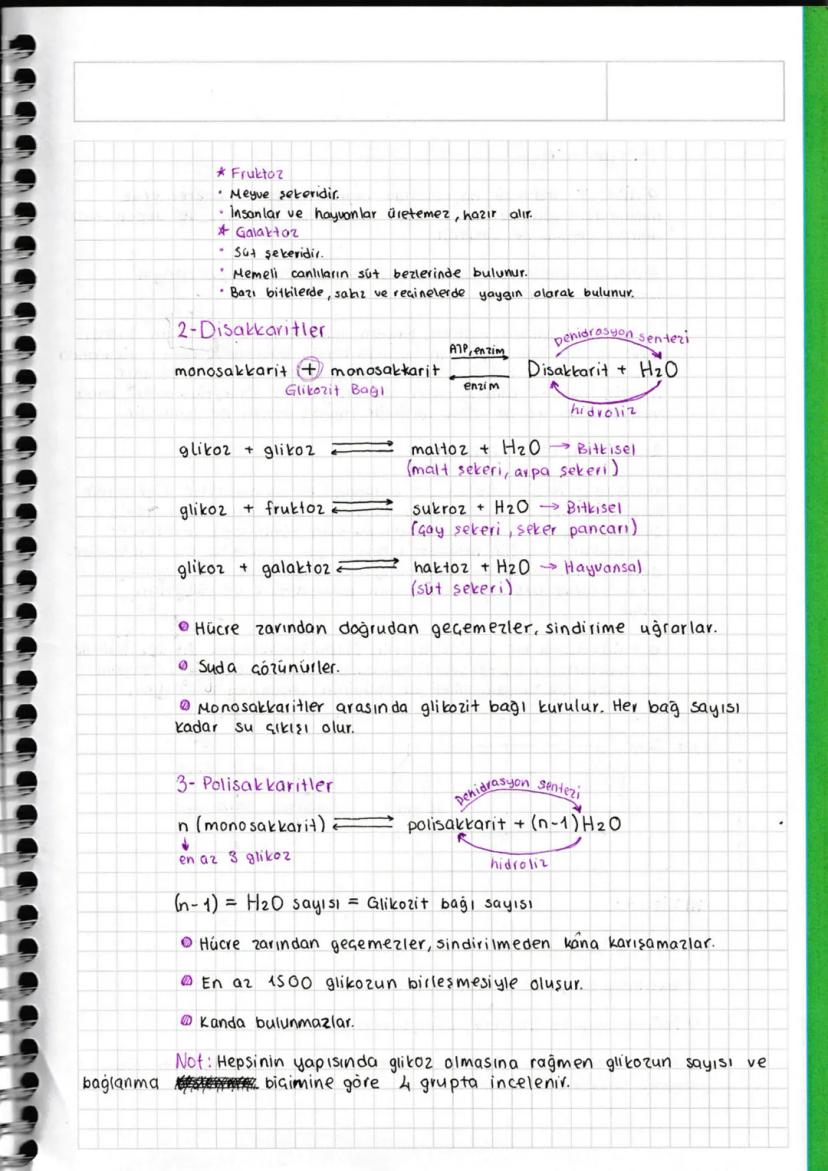 * Fruktoz
• Meyve şekeridir.
• İnsanlar ve hayvanlar üretemez, hazır alır.
* Galaktoz
• Süt şekeridir.
• Memeli canlıların süt bezlerinde bulunur.
• Bazı bitkilerde, sakız ve reçinelerde yaygın olarak bulunur.
2-Disakkaritler
ATP, enzim Dehidrasyon sentezi
monosakkarit + monosakkarit ⇌ Disakkarit + H2O
Glikozit Bağı enzim hidroliz
glikoz + glikoz ⇌ maltoz + H2O → Bitkisel
(malt şekeri, arpa şekeri)
glikoz + fruktoz ⇌ sukroz + H2O → Bitkisel
(çay şekeri, şeker pancarı)
glikoz + galaktoz ⇌ haktoz + H2O → Hayvansal
(süt şekeri)
Hücre zarından doğrudan geçemezler, sindirime uğrarlar.
Suda çözünürler.
Monosakkaritler arasında glikozit bağı kurulur. Her bağ sayısı
kadar su çıkışı olur.
3- Polisakkaritler
Dehidrasyon sentezi
n (monosakkarit) ⇌ polisakkarit + (n-1) H2O
↓
en az 3 glikoz hidroliz
(n-1) = H2O sayısı = Glikozit bağı sayısı
Hücre zarından geçemezler, sindirilmeden kana karışamazlar.
En az 1500 glikozun birleşmesiyle oluşur.
Kanda bulunmazlar.
Not: Hepsinin yapısında glikoz olmasına rağmen glikozun sayısı ve
bağlanma biçimine göre 4 grupta incelenir.